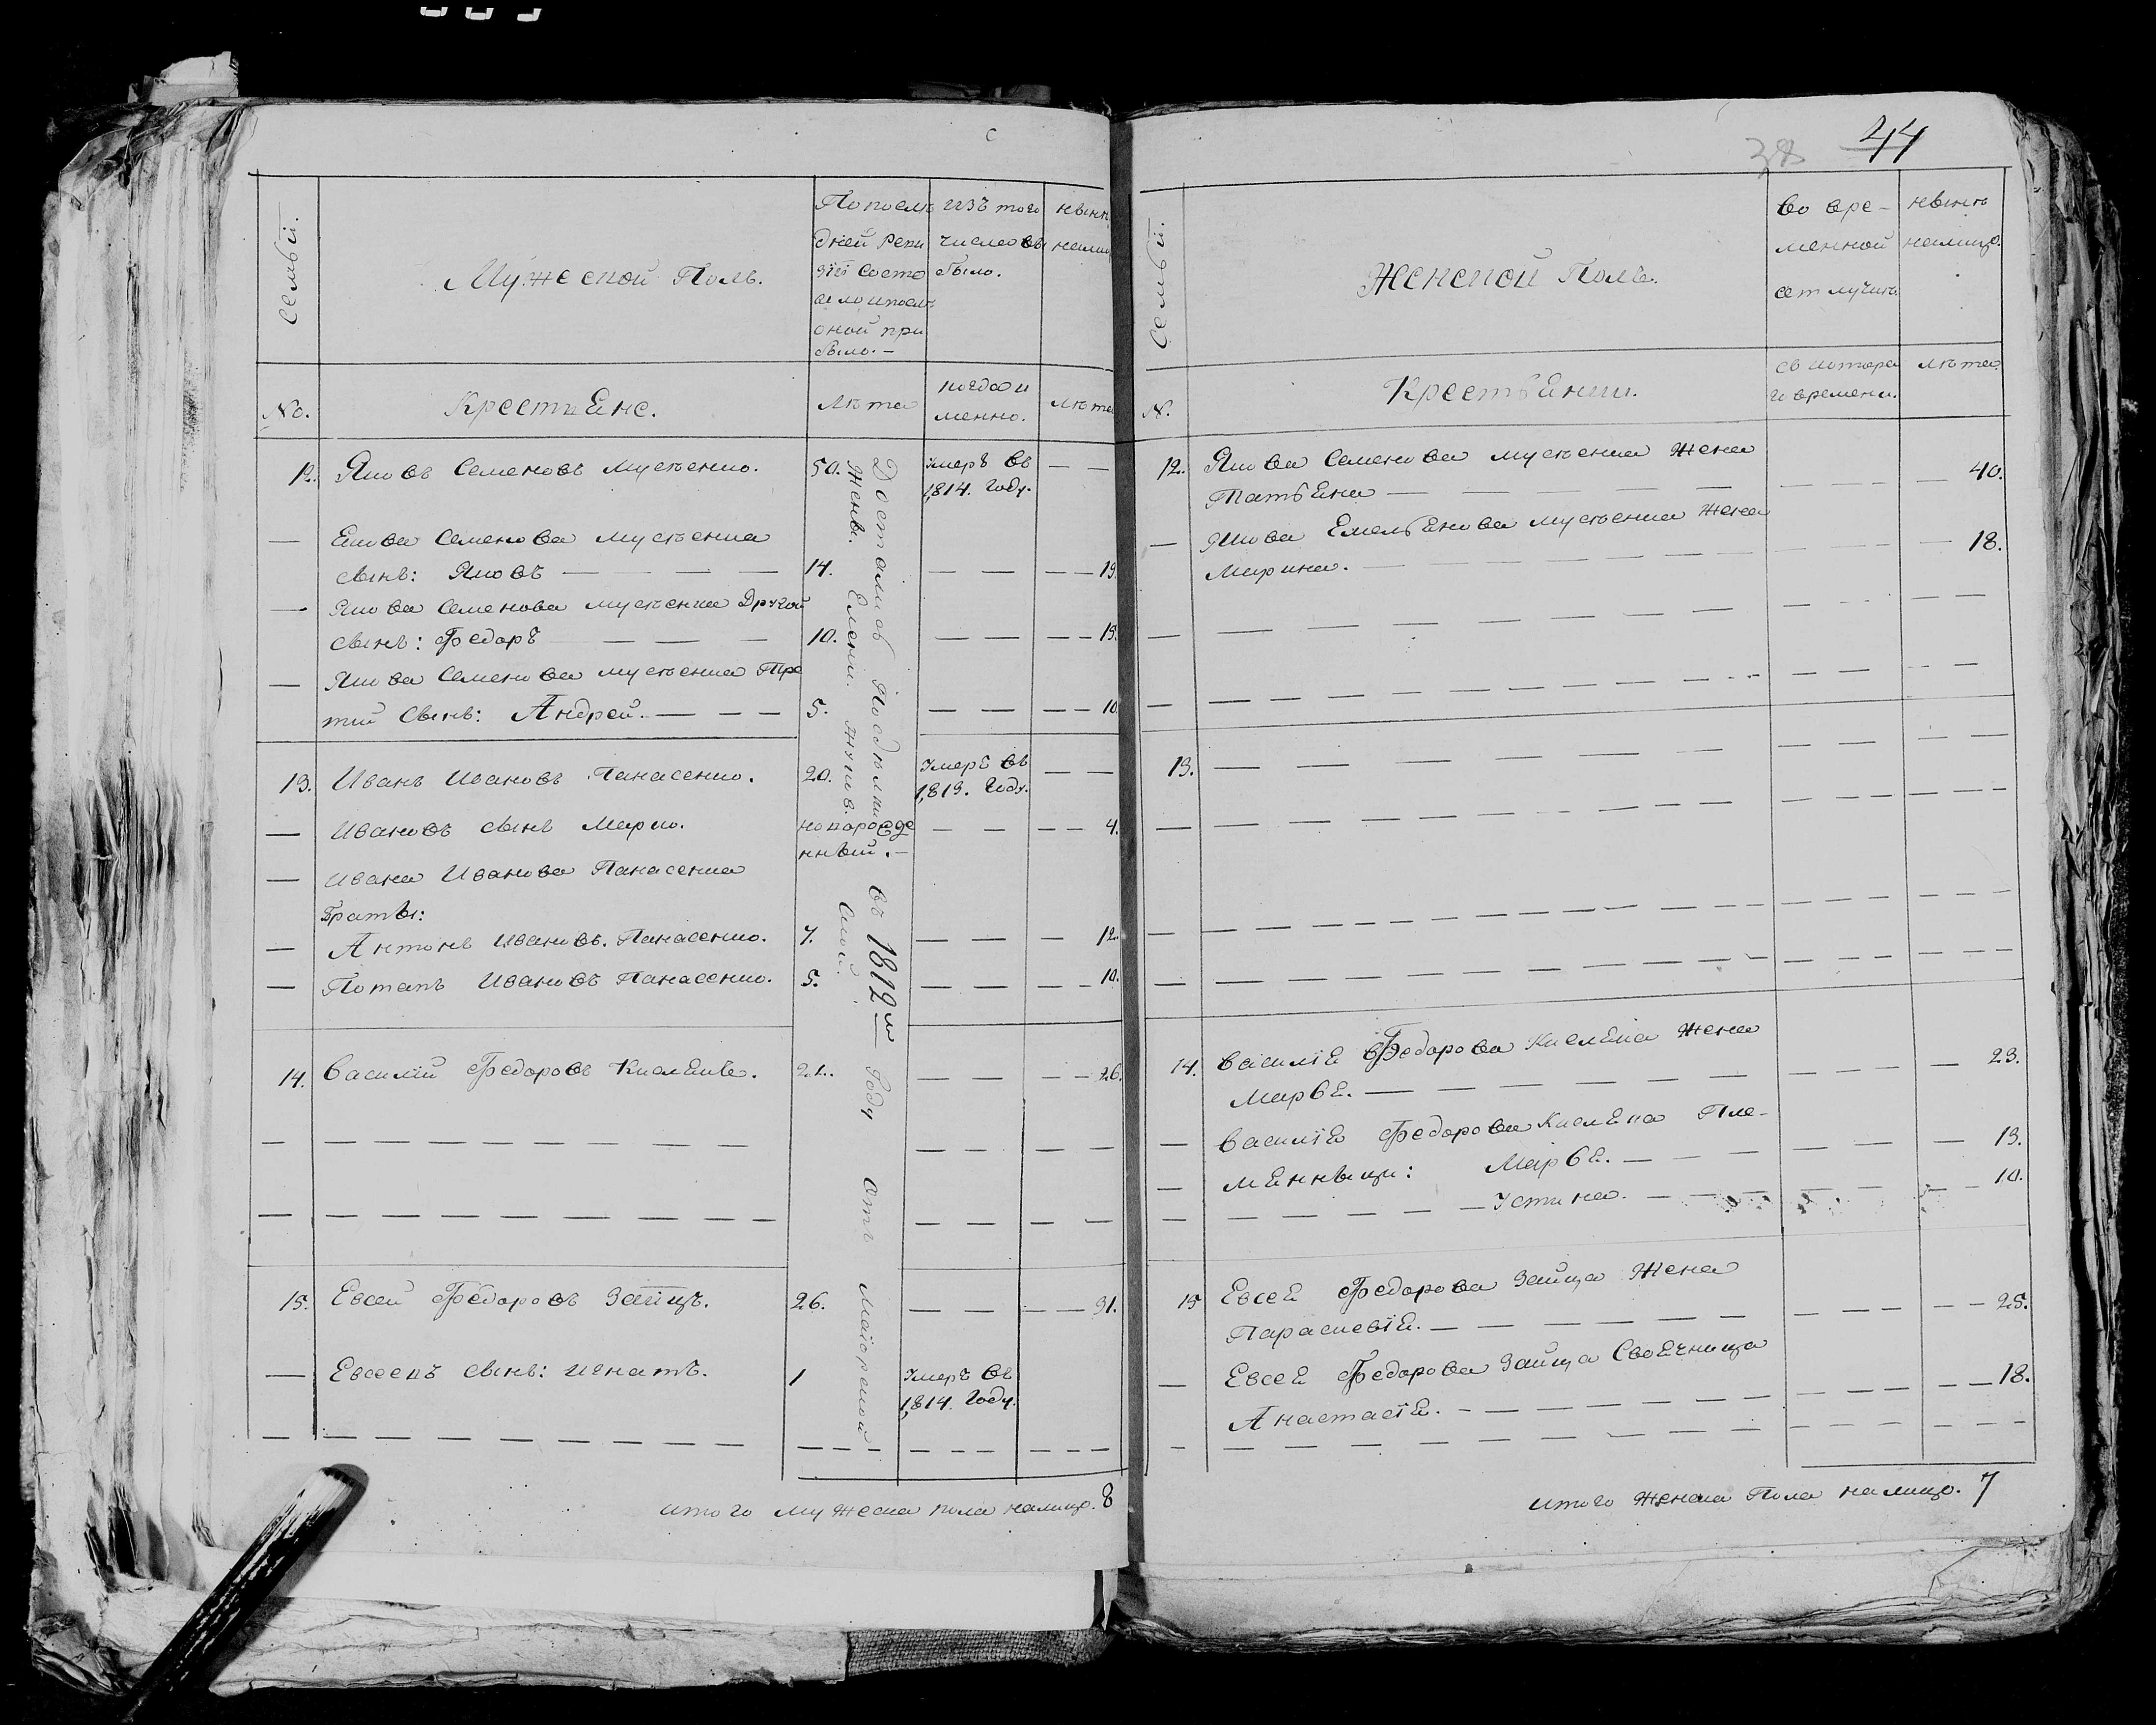 Семьй.
Мужеской Полъ.
Попослѣ
дней Реви
зїи состо
яло ипослѣ
оной при
было.—
изъ того
числа вы
было.
нынѣ
налиц
No.
Крестьяне.
Лѣта
когда и
менно.
Лѣта
12. Яковъ Семеновъ Мусѣенко. 50. Умеръ въ — —
1814. Году.
— Якова Семенова Мусѣенка
сынъ: Яковъ — — — — 14. — — — — 19.
— Якова Семенова Мусѣенка Другой
сынъ: Федоръ — — — 10. — — — — 15.
— Якова Семенова Мусѣенка Тре
тий Сынъ: Андрей. — — — 5. — — — — 10.
13. Иванъ Ивановъ Панасенко. 20. Умеръ въ — —
1813. Году.
— Ивановъ сынъ Марко. новорожде — — — — 4.
нный.—
— Ивана Иванова Панасенка
Братьы:
— Антонъ Ивановъ. Панасенко. 7. — — — 12.
— Потапъ Ивановъ Панасенко. 5. — — — — 10.
14. Василий Федоровъ Кислякъ. 21. — — — — 26.
15. Евсей Федоровъ Заицъ. 26. — — — — 31.
— Евсеевъ сынъ: Игнатъ. 1 Умеръ въ
1814. Году.
Достались Посдѣлки въ 1812м Году отъ Маїорской
Жены. Елены.
итого мужеска пола налицо. 8
38 44
Семьй.
Женской Полъ.
во вре-
менной
отлучкѣ
нынѣ
налицо.
N.
Крестьянки.
съ котора
го времени.
Лѣта.
12. Якова Семенова Мусѣенка Жена
Татьяна — — — — — — — — — 40.
— Якова Емельянова Мусѣенка Жена
Марина. — — — — — — — — 18.
13. — — — — — —
14. Василїя Федорова Кисляка Жена
Марья. — — — — — — — — 23.
— Василїя Федорова Кисляка Пле-
— мянныцы: Марья. — — — — — — 13.
— — — — — Устина. — — — — — 10.
15 Евсея Федорова Зайца Жена
Параскевїя. — — — — — — — — 25.
— Евсея Федорова Зайца Своячница
Анастасїя. — — — — — — — — 18.
итого женска Пола налицо. 7